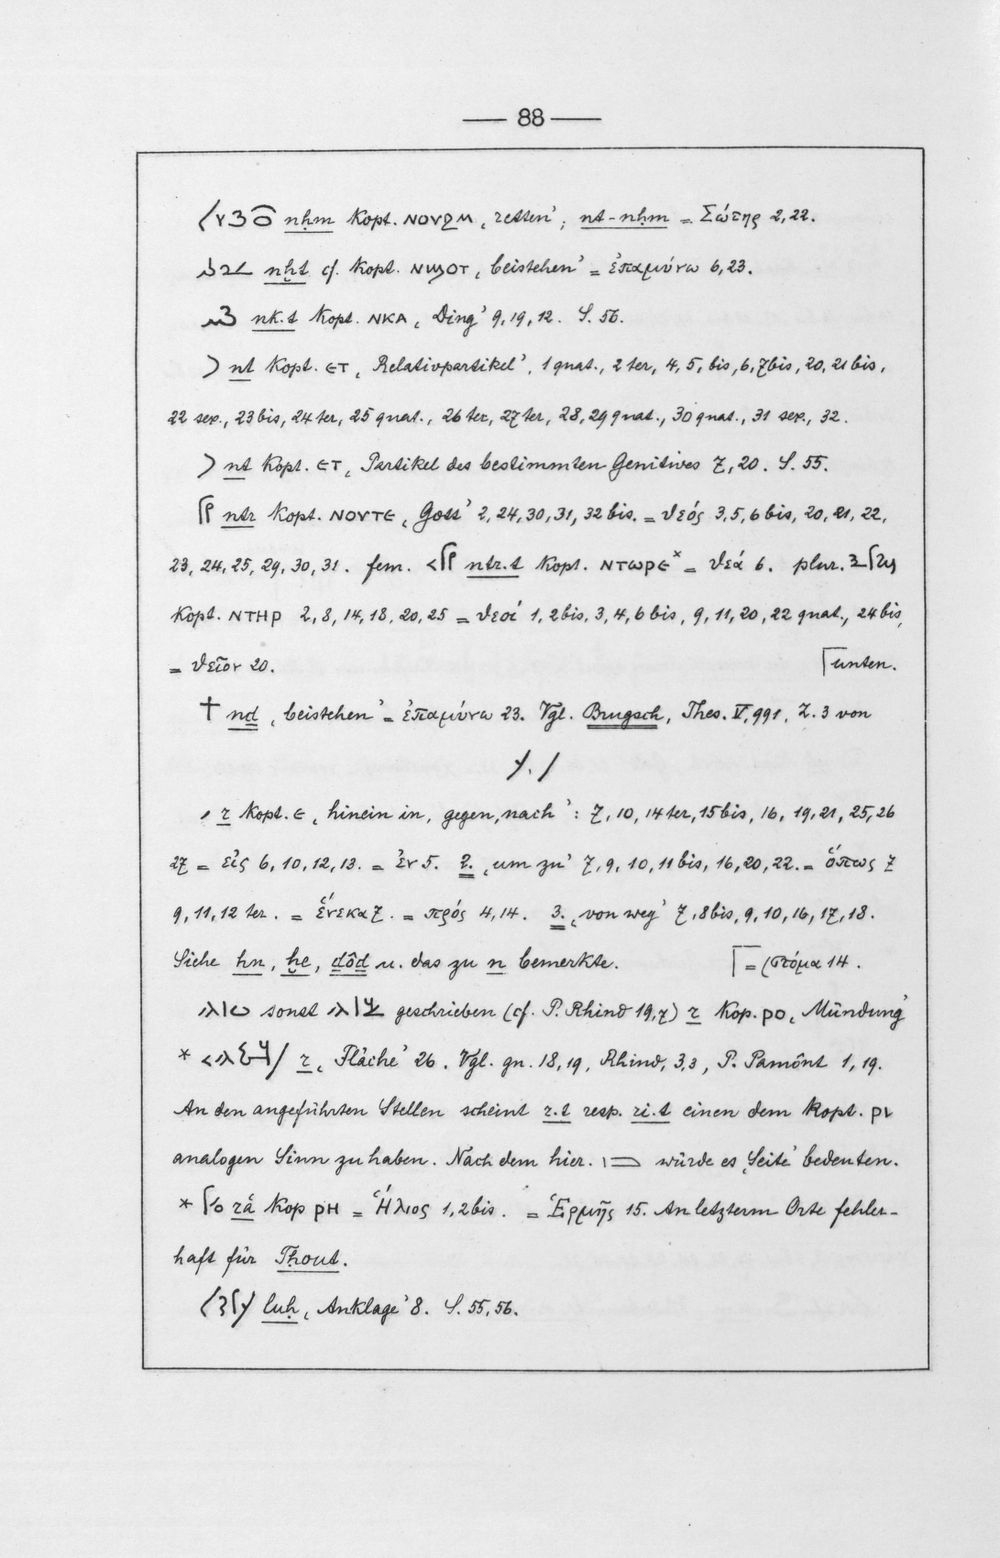 — 88 —
nḥm Kopt. ⲛⲟⲩϩⲙ ‚retten'; nt-nḥm = Σώτης 2,22.
nḫt cf. Kopt. ⲛϣⲟⲧ ‚beistehen' = ἐπαμύνω 6,23.
nk.t Kopt. ⲛⲕⲁ ‚Ding' 9,19,12. S. 56.
nt Kopt. ⲉⲧ ‚Relativpartikel', 1 quat., 2 ter, 4, 5, bis, 6, 7 bis, 20, 21 bis,
22 sex., 23 bis, 24 ter, 25 quat., 26 ter, 27 ter, 28, 29 quat., 30 quat., 31 sex., 32.
nt Kopt. ⲉⲧ ‚Partikel des bestimmten Genitives 7, 20. S. 55.
ntr Kopt. ⲛⲟⲩⲧⲉ ‚Gott' 2, 24, 30, 31, 32 bis. = θεός 3, 5, 6 bis, 20, 21, 22,
23, 24, 25, 29, 30, 31. fem. ntr.t Kopt. ⲛⲧⲱⲣⲉ* = θεά 6. plur.
Kopt. ⲛⲧⲏⲣ 2, 8, 14, 18, 20, 25 = θεοί 1, 2 bis, 3, 4, 6 bis, 9, 11, 20, 22 quat., 24 bis,
= θεῖον 20. ⌈unten.
nd ‚beistehen' = ἐπαμύνω 23. Vgl. Brugsch, Thes. V, 991, Z. 3 von
r Kopt. ⲉ ‚hinein in, gegen, nach': 7, 10, 14 ter, 15 bis, 16, 19, 21, 25, 26
27 = εἰς 6, 10, 12, 13. = ἐν 5. 2. ‚um zu' 7, 9, 10, 11 bis, 16, 20, 22. = ὅπως 7
9, 11, 12 ter. = ἕνεκα 7. = πρός 4, 14. 3. ‚von weg' 7, 8 bis, 9, 10, 16, 17, 18.
Siehe hn, ḫe, dôd u. das zu n bemerkte. ⌈= (στόμα 14.
sonst geschrieben (cf. P. Rhind 19,7) r Kop. ⲣⲟ ‚Mündung'
* r ‚Fläche' 26. Vgl. gn. 18, 19, Rhind, 3,3, P. Pamônt 1, 19.
An den angeführten Stellen scheint r.t resp. ri.t einen dem Kopt. ⲣⲓ
analogen Sinn zu haben. Nach dem hier. würde es ‚Seite' bedeuten.
* rå Kop ⲣⲏ = Ἥλιος 1, 2 bis. = Ἑρμῆς 15. An letzterm Orte fehler-
haft für Tḥout.
luḥ ‚Anklage' 8. S. 55, 56.